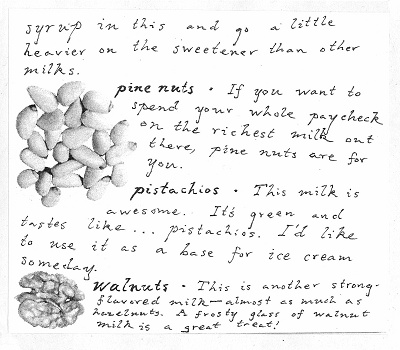 syrup in this and go a little
heavier on the sweetener than other
milks.
pine nuts • If you want to
spend your whole paycheck
on the richest milk out
there, pine nuts are for
you.
pistachios • This milk is
awesome. It's green and
tastes like... pistachios. I'd like
to use it as a base for ice cream
someday.
walnuts • This is another strong-
flavored milk—almost as much as
hazelnuts. A frosty glass of walnut
milk is a great treat!